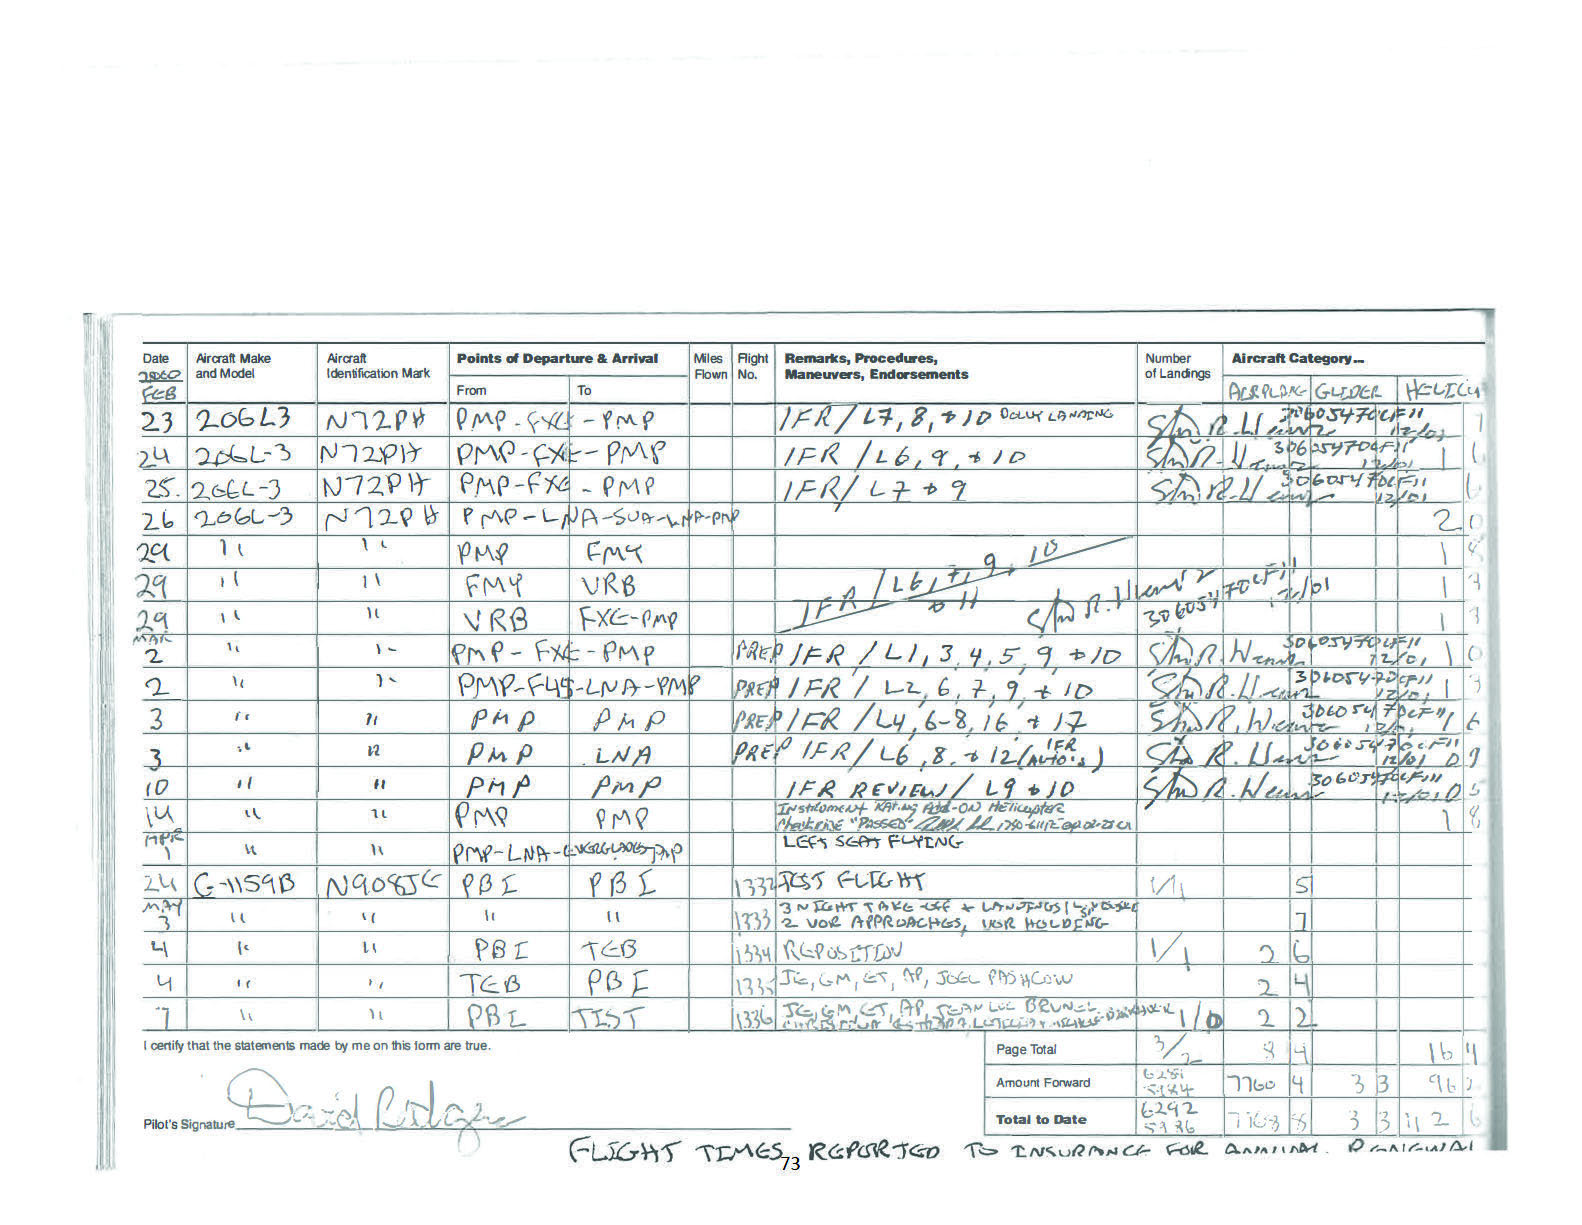 Date Aircraft Make Aircraft Points of Departure & Arrival Miles Flight Remarks, Procedures, Number Aircraft Category...
and Model Identification Mark Flown No. Maneuvers, Endorsements of Landings
FEB From To AIRPLANE GLIDER
23 206L3 N72PH PMP-FXE-PMP IFR/L7,8,+10 DOLLY LANDING 3060547DCFII 12/01
24 206L-3 N72PH PMP-FXE-PMP IFR/L6,9,+10 3060547DCFII 12/01 1 6
25. 206L-3 N72PH PMP-FXE-PMP IFR/L7+9 3060547DCFII 12/01
26 206L-3 N72PH PMP-LNA-SUA-LNA-PMP 2 0
29 " " PMP FMY 1 8
29 " " FMY VRB IFR/L6,7,9,10 3060547DCFII 12/01 1
29 " " VRB FXE-PMP +11 1
MAR
2 " " PMP-FXE-PMP PREP IFR/L1,3,4,5,9,+10 3060547DCFII 12/01 1 0
2 " " PMP-F45-LNA-PMP PREP IFR/L2,6,7,9,+10 3060547DCFII 12/01 1 3
3 " " PMP PMP PREP IFR/L4,6-8,16+17 3060547DCFII 1 6
3 " " PMP LNA PREP IFR/L6,8,+12 (IFR AUTO'S) 3060547DCFII 12/01 0 9
10 " " PMP PMP IFR REVIEW/L9+10 3060547DCFII 12/01 0 5
14 " " PMP PMP Instrument Rating Add-ON Helicopter 1 8
Checkride "PASSED"
APR
1 " " PMP-LNA-EVERGLADES-PMP LEFT SEAT FLYING
24 G-1159B N908JE PBI PBI 1332 TEST FLIGHT 1/1 5
MAY 3 NIGHT TAKE-OFF + LANDINGS
3 " " " " 1333 2 VOR APPROACHES, VOR HOLDING 7
4 " " PBI TEB 1334 REPOSITION 1/1 2 6
4 " " TEB PBI 1335 JE, GM, ET, AP, JOEL PASHCOW 2 4
7 " " PBI TIST 1336 JE, GM, ET, AP, JEAN LUC BRUNEL 1/0 2 2
I certify that the statements made by me on this form are true. Page Total 3/2 8 4 16 4
Amount Forward 7760 4 3 3 96 2
Pilot's Signature David Rodgers Total to Date 6292 7768 8 3 3 112 6
FLIGHT TIMES REPORTED TO INSURANCE FOR ANNUAL RENEWAL
73